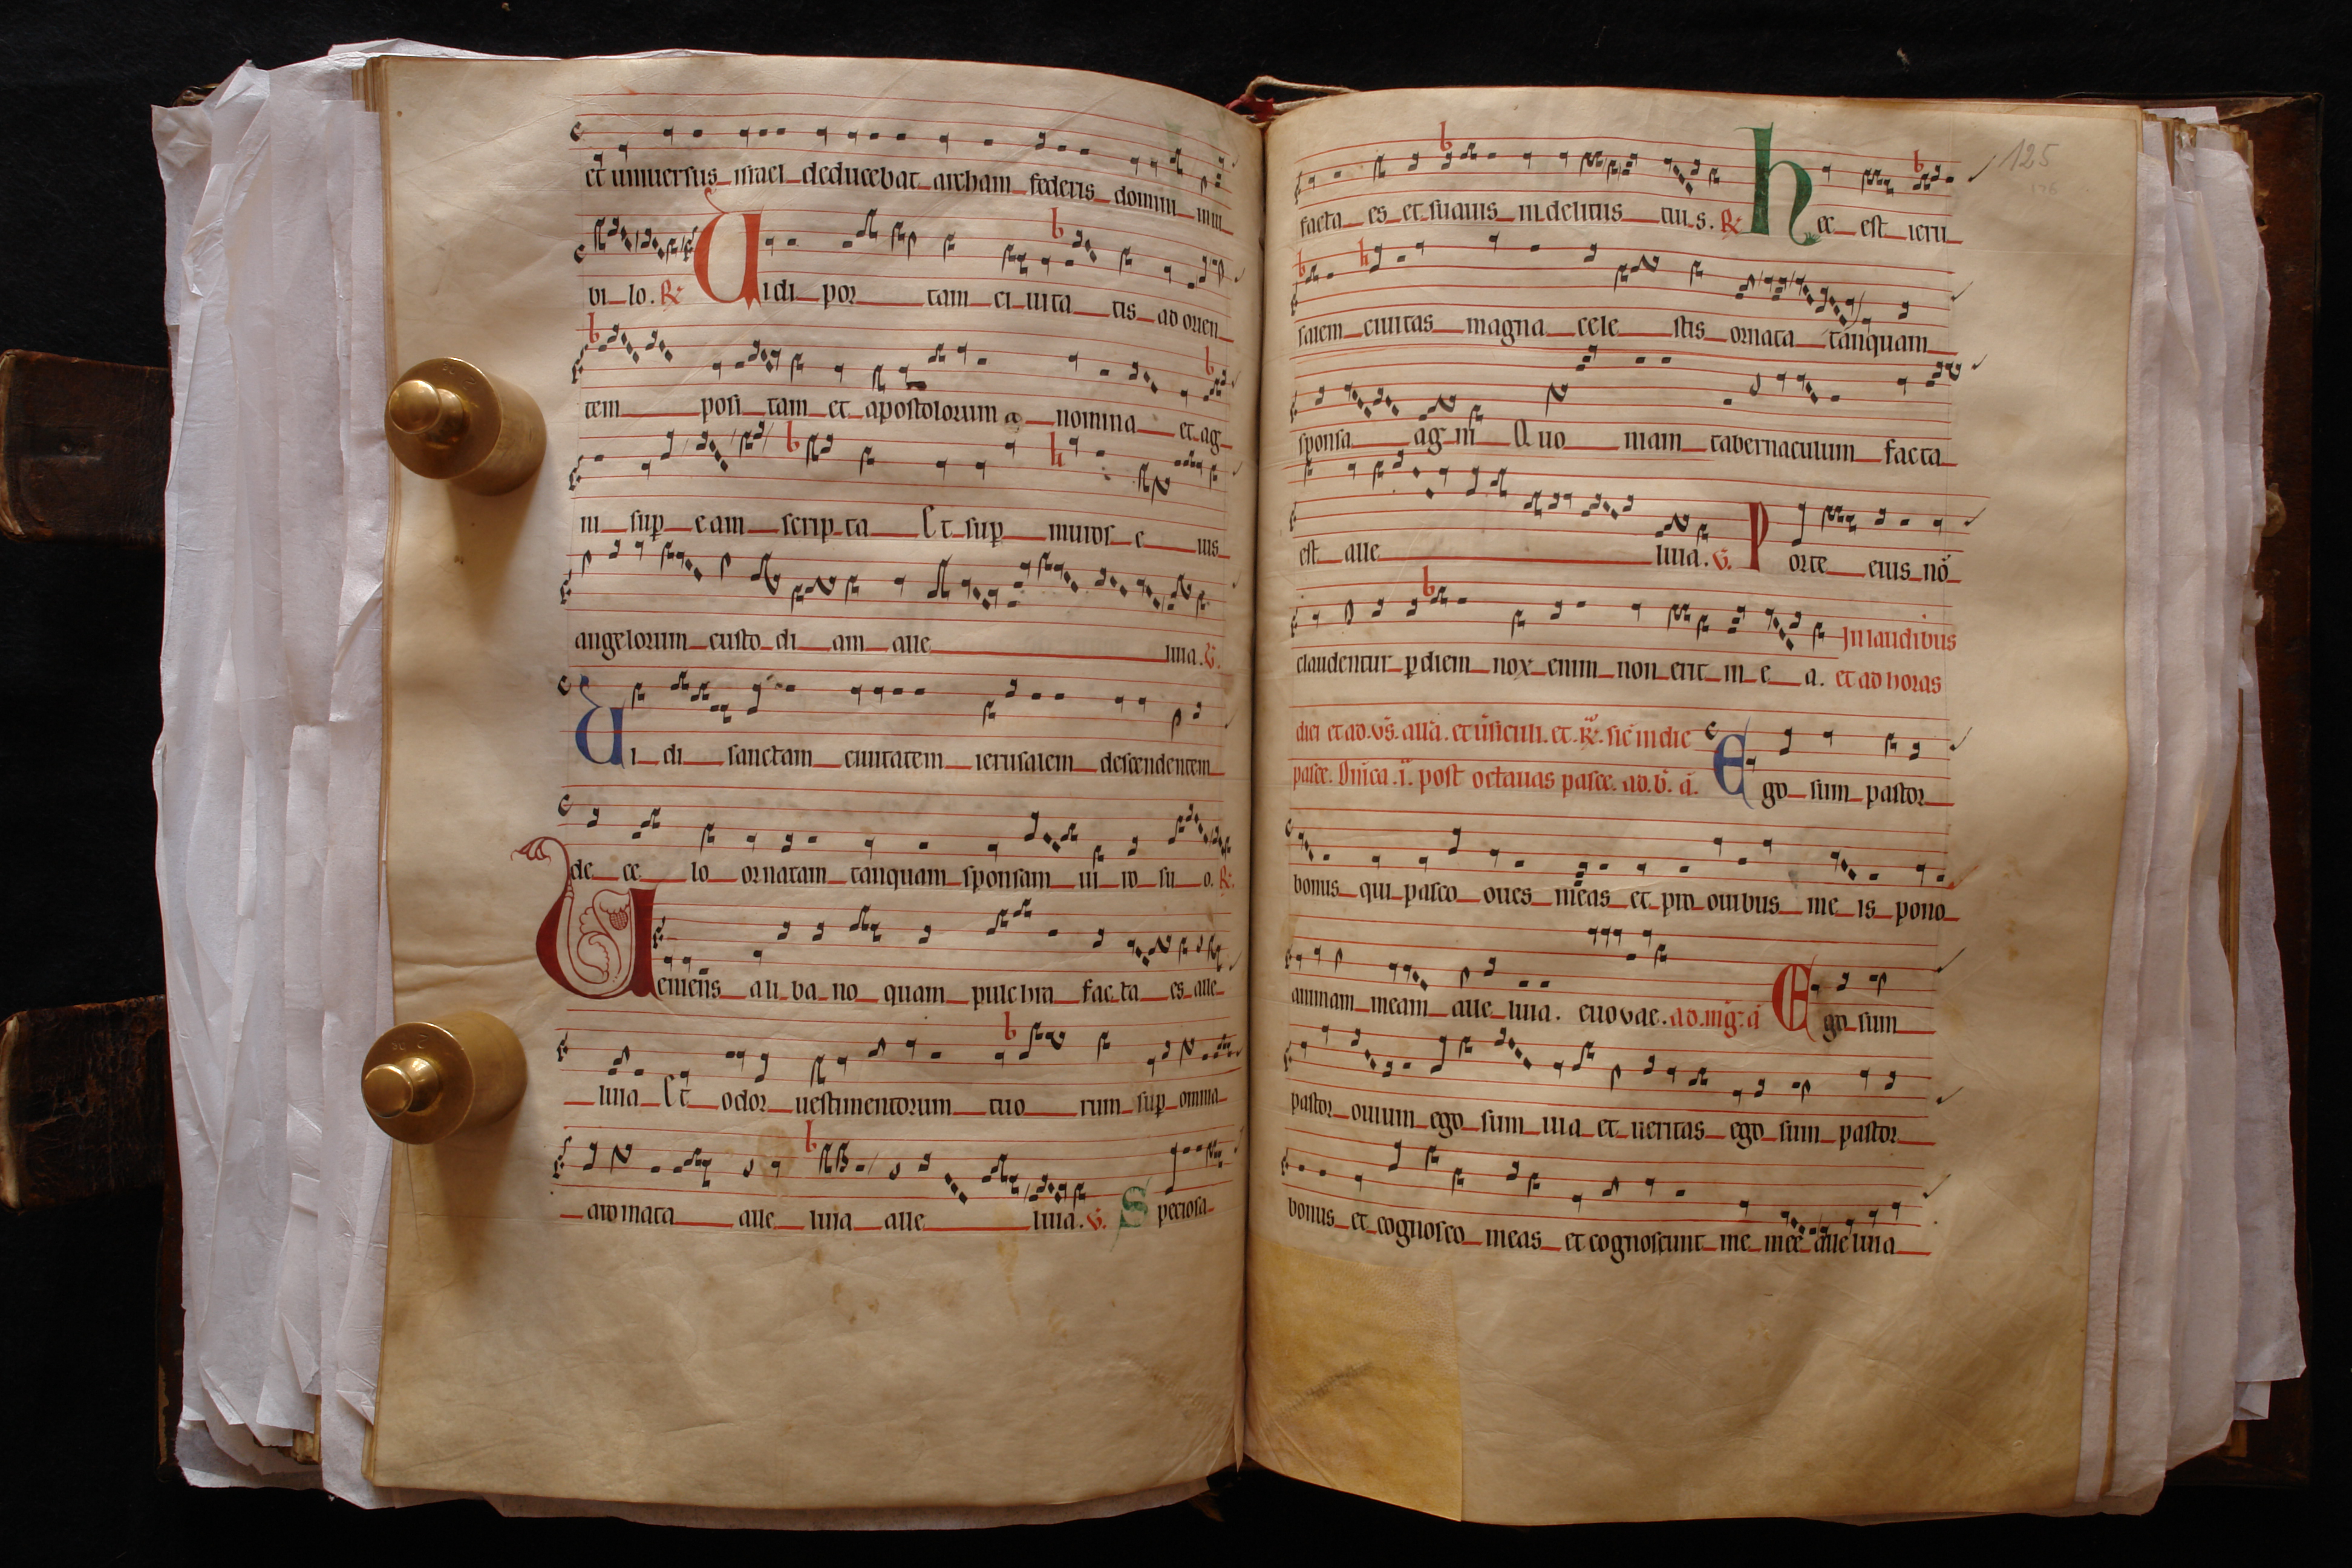 et uniuersus israel deducebat archam federis domini in iu
bi lo. R Uidi por tam ci uita tis ad orien
tem posi tam et apostolorum nomina et ag
ni sup eam scrip ta Et sup muros e ius
angelorum custo di am alle luia. V.
Ui di sanctam ciuitatem ierusalem descendentem
de ce lo ornatam tanquam sponsam ui ro su o. R.
Ueniens a li ba no quam pulchra fac ta es alle
luia Et odor uestimentorum tuo rum sup omnia
aromata alle luia alle luia. V. Speciosa
125
facta es et suauis in deliciis tuis. R Hec est ieru
salem ciuitas magna cele stis ornata tanquam
sponsa ag ni Quo niam tabernaculum facta
est alle luia. V. Porte eius nō
claudentur p diem nox enim non erit in e a. In laudibus
et ad horas
diei et ad. vs̄. allā. et ūsiculi. et. R. sic in die
pasce. Dnīca .i. post octauas pasce. ad. b. ā. Ego sum pastor
bonus qui pasco oues meas et pro ouibus me is pono
animam meam alle luia. euouae. ad. mḡ. ā Ego sum
pastor ouium ego sum uia et ueritas ego sum pastor
bonus et cognosco meas et cognoscunt me mee alle luia